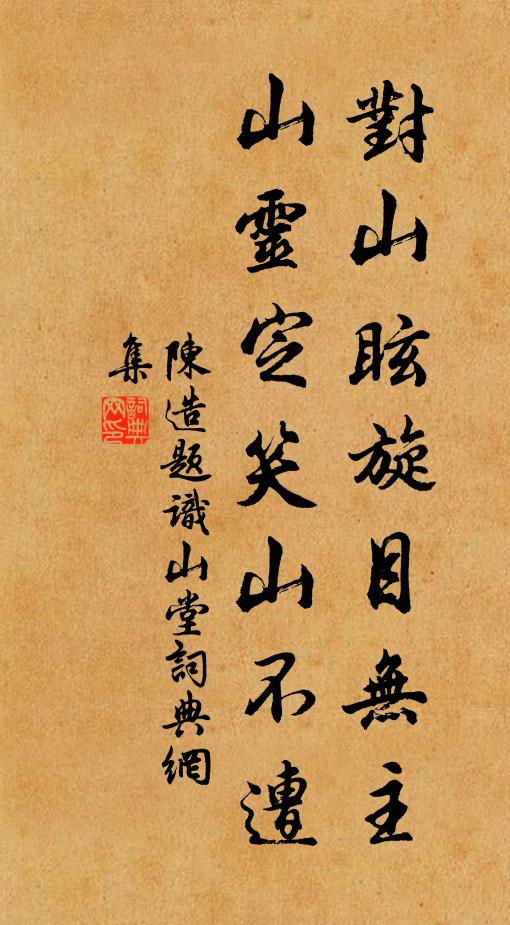 對山眩旋目無主
山靈定笑山不遭
陳造題識山堂詞典網
集
詞典網印